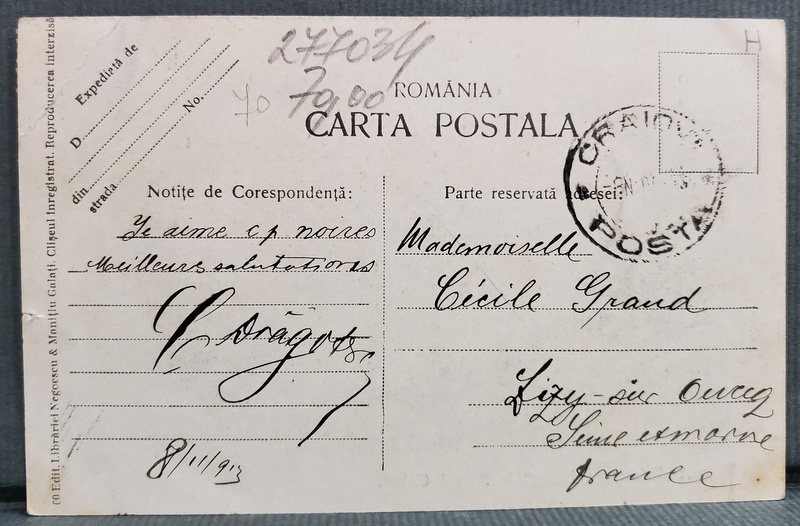 60 Edit. Librăriei Negoescu & Manițiu Galați. Clișeul înregistrat. Reproducerea interzisă
Expediată de
D.
No.
din
strada
277034
70 70,00
H
ROMÂNIA
CARTA POSTALA
CRAIOVA
POSTA
Notițe de Corespondență:
Parte reservată adresei:
Je aime c.p noires
Meilleures salutations
Drăgot
8/11/913
Mademoiselle
Cécile Grand
Lizy-sur Ourcq
Seine et marne
france